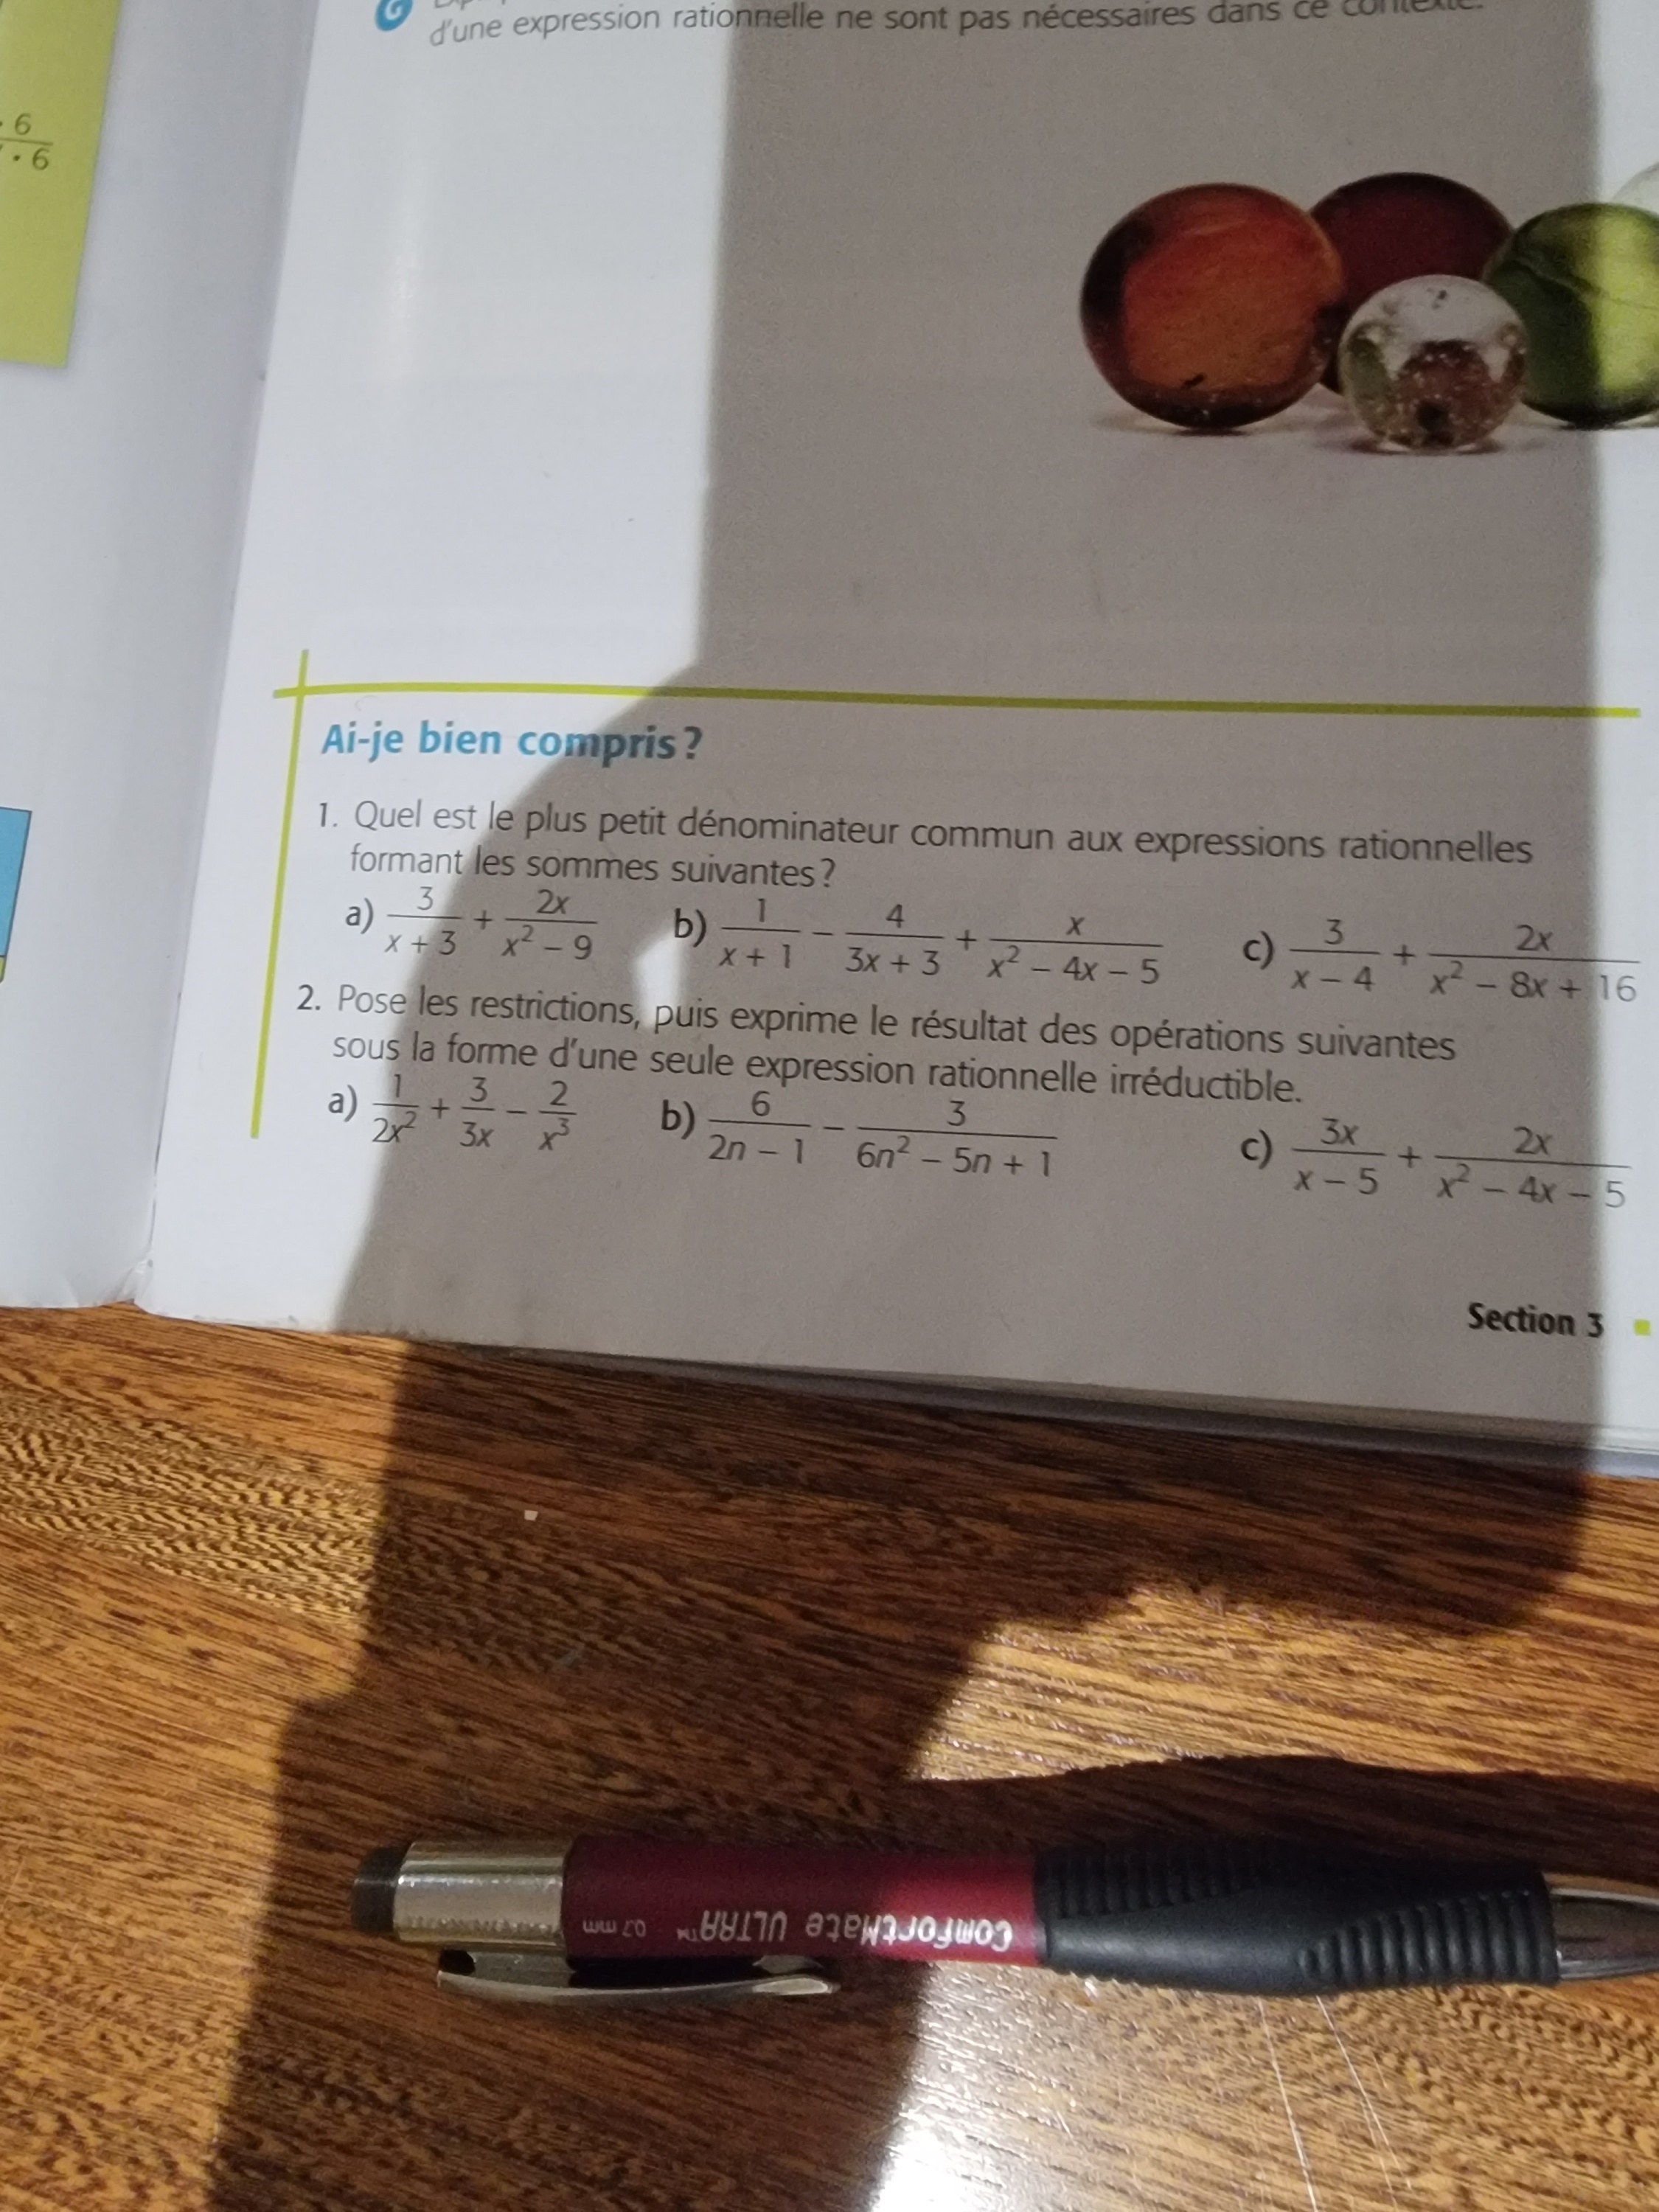 6
• 6
d'une expression rationnelle ne sont pas nécessaires dans ce contexte.
Ai-je bien compris ?
1. Quel est le plus petit dénominateur commun aux expressions rationnelles
formant les sommes suivantes ?
a) 3/(x + 3) + 2x/(x² – 9) b) 1/(x + 1) – 4/(3x + 3) + x/(x² – 4x – 5) c) 3/(x – 4) + 2x/(x² – 8x + 16)
2. Pose les restrictions, puis exprime le résultat des opérations suivantes
sous la forme d'une seule expression rationnelle irréductible.
a) 1/(2x²) + 3/(3x) – 2/(x³) b) 6/(2n – 1) – 3/(6n² – 5n + 1) c) 3x/(x – 5) + 2x/(x² – 4x – 5)
Section 3
ComfortMate ULTRA™ 0.7 mm